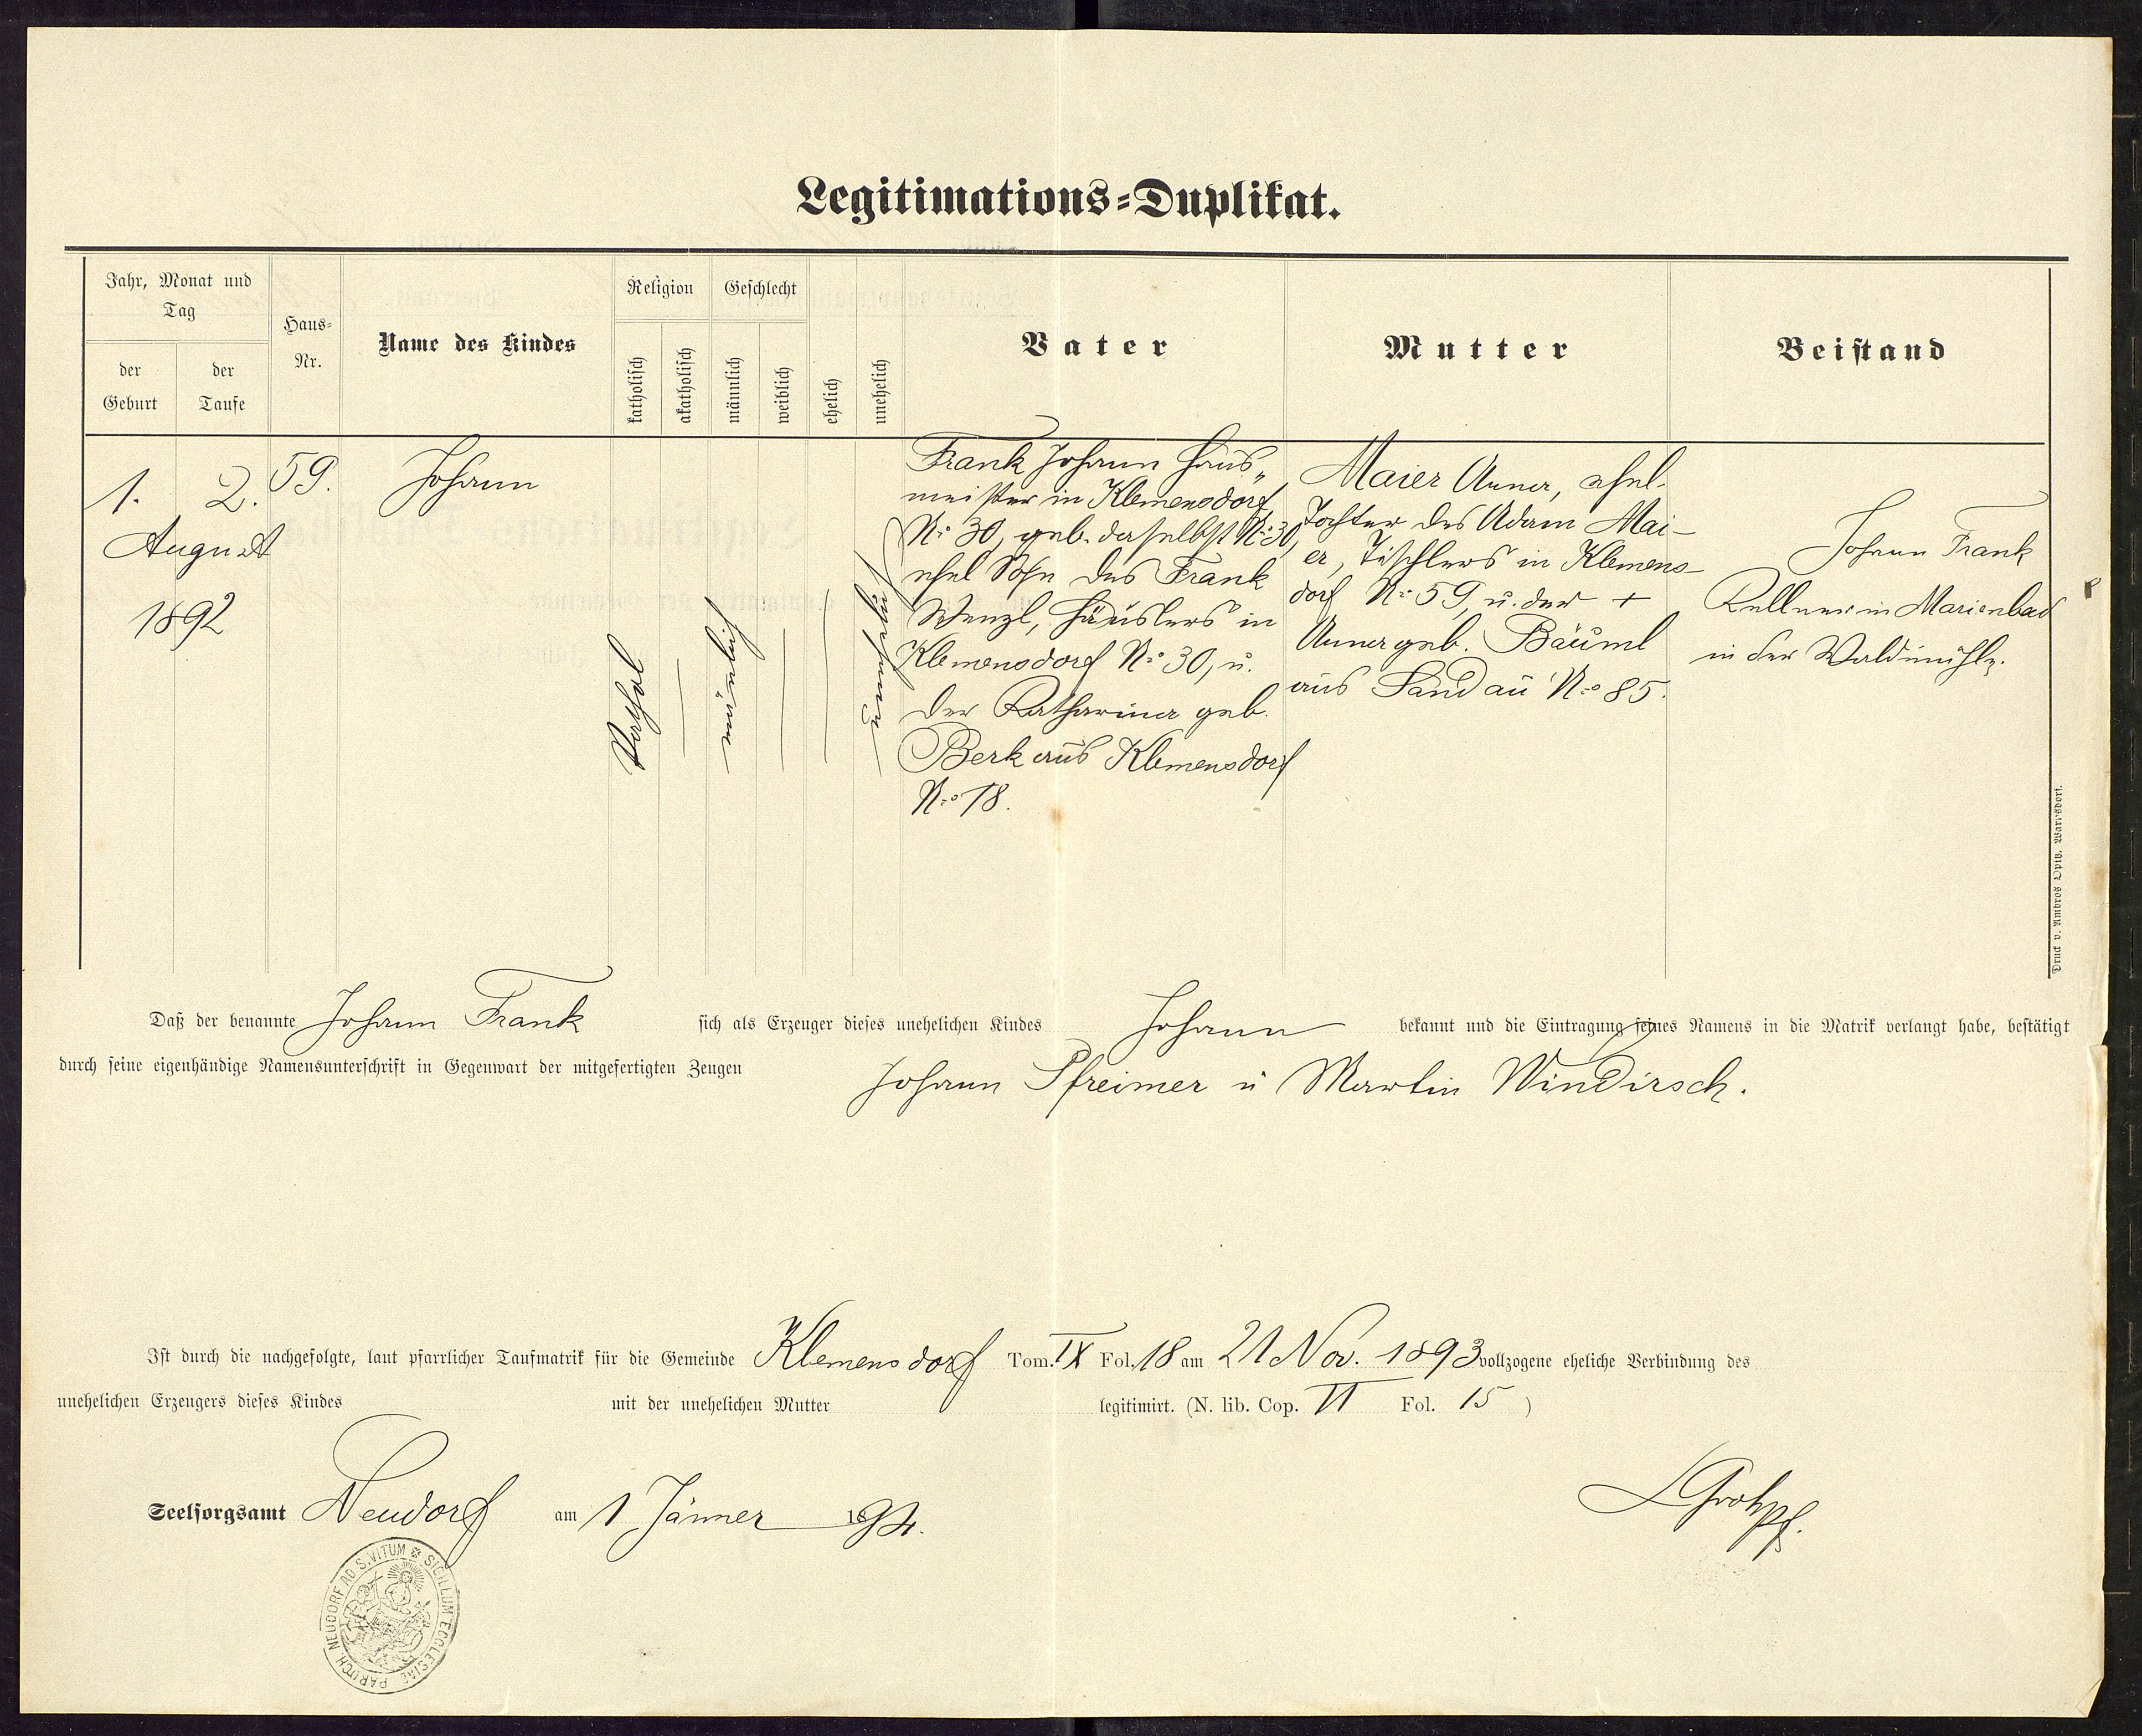 Legitimations-Duplikat.
Jahr, Monat und Tag
der Geburt
der Taufe
Haus-Nr.
Name des Kindes
Religion
katholisch
akatholisch
Geschlecht
männlich
weiblich
ehelich
unehelich
Vater
Mutter
Beistand
1. 2.
August
1892
59.
Johann
Kathol
männlich
Frank Johann Haus„
meister in Klemensdorf
N: 30, geb. daselbst N: 30,
ehel Sohn des Frank
Wenzl, Häuslers in
Klemensdorf N: 30, u.
der Katharina geb.
Berk aus Klemensdorf
N: 18.
Maier Anna, ehel.
Tochter des Adam Mai-
er, Tischlers in Klemens-
dorf N: 59, u. der +
Anna geb. Bäuml
aus Sandau N: 85.
Johann Frank
Kellner in Marienbad
in der Waldmühle.
Druck v. Ambros Opitz, Warnsdorf.
Daß der benannte Johann Frank sich als Erzeuger dieses unehelichen Kindes Johann bekannt und die Eintragung seines Namens in die Matrik verlangt habe, bestätigt
durch seine eigenhändige Namensunterschrift in Gegenwart der mitgefertigten Zeugen Johann Pfreimer u Martin Windirsch.
Ist durch die nachgefolgte, laut pfarrlicher Taufmatrik für die Gemeinde Klemensdorf Tom. IX Fol. 18 am 21 Nov. 1893 vollzogene eheliche Verbindung des
unehelichen Erzeugers dieses Kindes mit der unehelichen Mutter legitimirt. (N. lib. Cop. VI Fol. 15 )
Seelsorgsamt Neudorf am 1 Jänner 1894.
L Groh Pf.
SIGILLUM ECCLESIAE PAROCH. NEUDORF AD S. VITUM